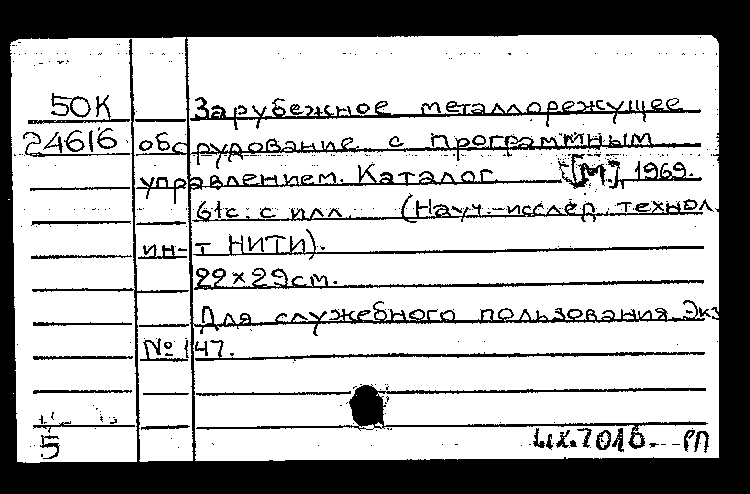 50К Зарубежное металлорежущее
24616 оборудование с программным
управлением. Каталог [М], 1969.
61с. с илл. (Науч.-исслед. технол.
ин-т НИТИ).
22×29см.
Для служебного пользования. Экз
№ 147.
5 РП